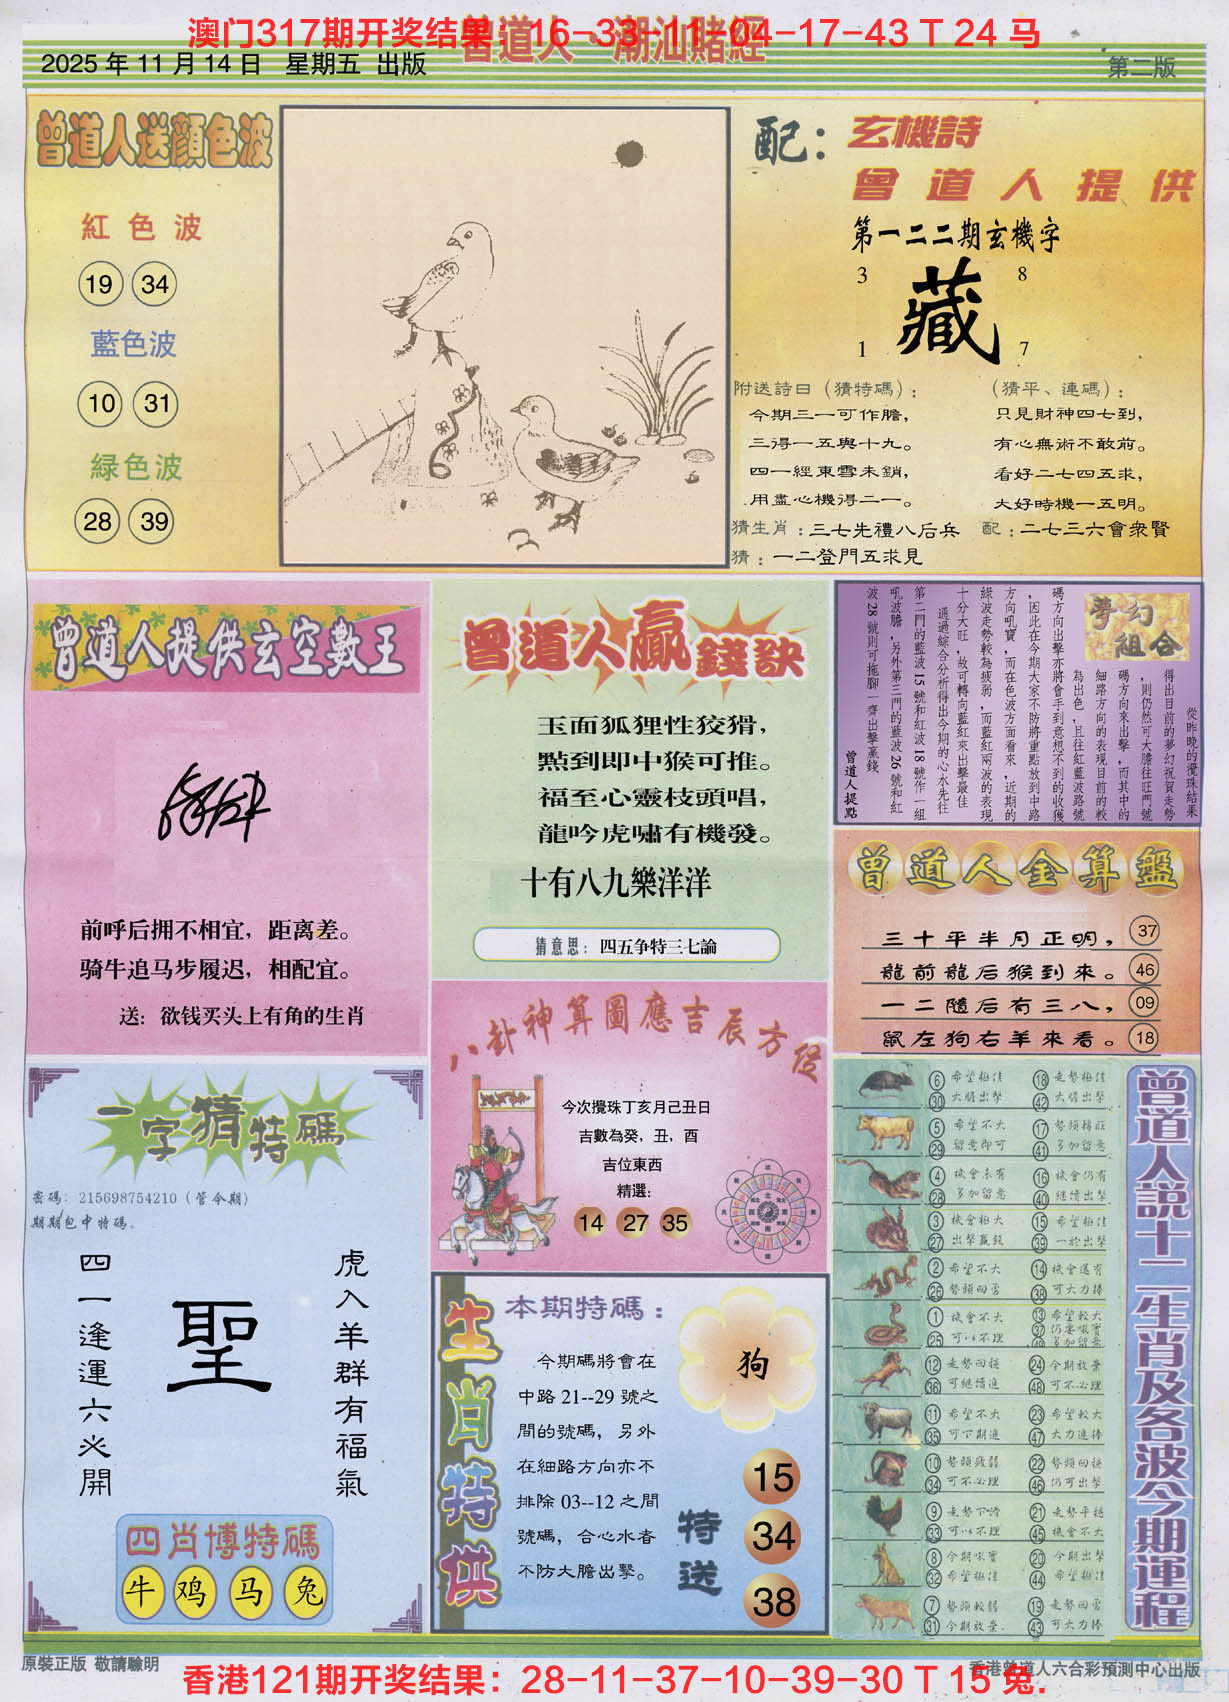 澳门317期开奖结果：16-33-11-04-17-43 T 24 马
曾道人·潮汕賭經
2025 年 11 月 14 日 星期五 出版
第二版
曾道人送顏色波
紅色波
19 34
藍色波
10 31
緑色波
28 39
配：玄機詩
曾道人提供
第一二二期玄機字
3 8
藏
1 7
附送詩曰（猜特碼）：
今期三一可作膽，
三得一五與十九。
四一經東雪未銷，
用盡心機得二一。
（猜平、連碼）：
只見財神四七到，
有心無術不敢前。
看好二七四五求，
大好時機一五明。
猜生肖：三七先禮八后兵
配：二七三六會衆賢
猜：一二登門五求見
曾道人提供玄空數王
前呼后拥不相宜，距离差。
骑牛追马步履迟，相配宜。
送：欲钱买头上有角的生肖
曾道人贏錢訣
玉面狐狸性狡猾，
點到即中猴可推。
福至心靈枝頭唱，
龍吟虎嘯有機發。
十有八九樂洋洋
猜意思：四五争特三七論
夢幻組合
從昨晚的攪珠結果
得出目前的夢幻祝賀走勢
，則仍然可大膽往旺門號
碼方向來出擊，而其中的
細路方向的表現目前的較
為出色，且往紅藍波路號
碼方向出擊亦將會手到意想不到的收獲
，因此在今期大家不防將重點放到中路
方向吼寶，而在色波方面看來，近期的
綠波走勢較為疲弱，而藍紅兩波的表現
十分大旺，故可轉向藍紅來出擊最佳
通過綜合分析得出今期的心水先往
第二門的藍波 15 號和紅波 18 號作一組
吼波膽，另外第三門的藍波 26 號和紅
波 28 號則可拖腳一齊出擊贏錢
曾道人提點
曾道人金算盤
三十平半月正明， 37
龍前龍后猴到來。 46
一二隨后有三八， 09
鼠左狗右羊來看。 18
八卦神算圖應吉辰方位
今次攪珠丁亥月己丑日
吉數為癸，丑，酉
吉位東西
精選:
14 27 35
一字猜特碼
密碼：215698754210（管今期）
期期包中特碼。
虎入羊群有福氣
聖
四一逢運六必開
四肖博特碼
牛 鸡 马 兔
生肖特供
本期特碼：
今期碼將會在
中路 21--29 號之
間的號碼，另外
在細路方向亦不
排除 03--12 之間
號碼，合心水者
不防大膽出擊。
狗
特送
15
34
38
曾道人説十二生肖及各波今期運程
6 30 希望極佳 大膽出擊 18 42 走勢極佳 大膽出擊
5 29 希望不大 留意即可 17 41 勢頭轉旺 多加留意
4 28 機會未有 多加留意 16 40 機會仍有 繼續出擊
3 27 機會極大 出擊贏錢 15 39 希望極佳 一於出擊
2 26 希望不大 勢頭回勇 14 38 機會還有 可大力捧
1 25 機會不大 可以不理 13 37 49 希望較大 仍要吼實 多加留意
12 36 走勢回穩 可繼續進 24 48 今期放棄 可不必理
11 35 希望不大 可下期進 23 47 希望較大 大力進捧
10 34 勢頭疲弱 可不必理 22 46 勢頭回穩 仍可出擊
9 33 走勢下滑 可以不理 21 45 走勢平穩 機會不大
8 32 今期吼實 希望極佳 20 44 今期出擊 希望極佳
7 31 勢頭較弱 今期放棄. 19 43 走勢回勇 可大力捧
原裝正版 敬請驗明
香港曾道人六合彩預測中心出版
香港121期开奖结果：28-11-37-10-39-30 T 15 兔.